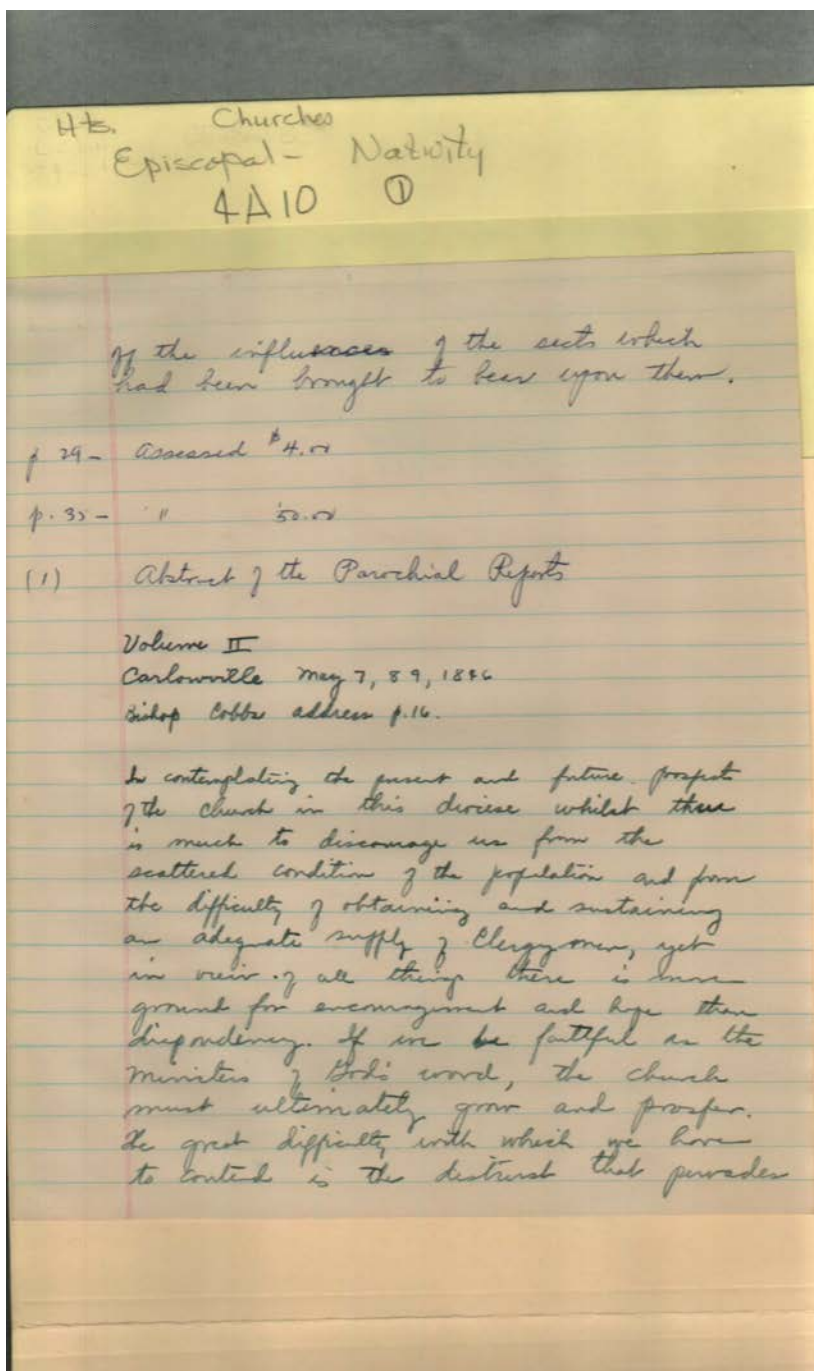 Hts. Churches
Episcopal - Nativity
4A10 ①
of the influences of the sects which
had been brought to bear upon them.
p 29 - Assessed $4.00
p. 35 - " 50.00
(1) Abstract of the Parochial Reports
Volume II
Carlowville May 7, 8 9, 1846
Bishop Cobbs address p.16.
In contemplating the present and future prospects
of the church in this diocese whilst there
is much to discourage us from the
scattered condition of the population and from
the difficulty of obtaining and sustaining
an adequate supply of Clergymen, yet
in view of all things there is more
ground for encouragement and hope than
dispondency. If we be faithful as the
Ministers of God's word, the church
must ultimately grow and prosper.
The great difficulty with which we have
to contend is the distrust that pervades